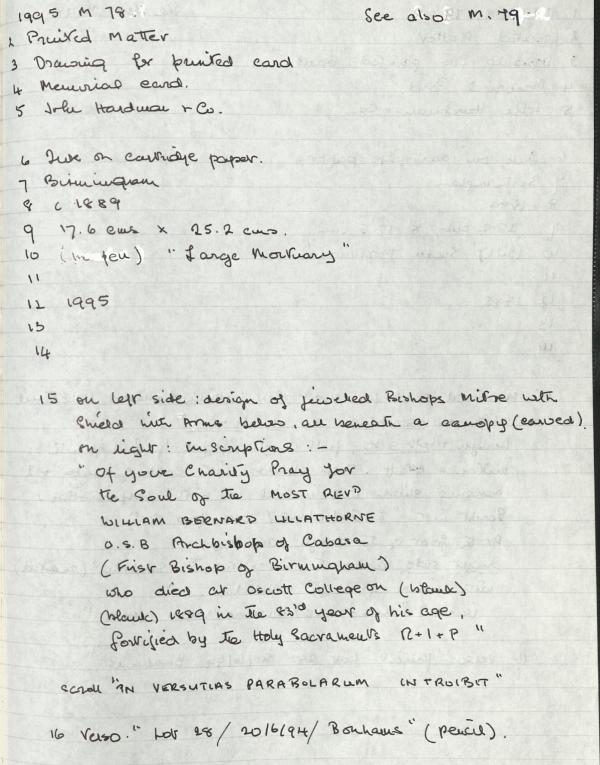 1995 M 78. See also M. 79
2 Printed Matter
3 Drawing for printed card
4 Memorial card.
5 John Hardman & Co.
6 Ink on cartridge paper.
7 Birmingham
8 c 1889
9 17.6 cms x 25.2 cms.
10 (in pen) "Large Mortuary"
11
12 1995
13
14
15 on left side : design of jewelled Bishops Mitre with
Shield with Arms below, all beneath a canopy (carved).
on right : inscriptions :-
"Of your Charity Pray for
the Soul of the MOST REVD
WILLIAM BERNARD ULLATHORNE
O.S.B Archbishop of Cabasa
(First Bishop of Birmingham)
who died at Oscott College on (blank)
(blank) 1889 in the 83rd year of his age,
fortified by the Holy Sacraments R+I+P "
scroll "IN VERSUTIAS PARABOLARUM INTROIBIT"
16 Verso. " Lot 28/ 20/6/94/ Bonhams" (pencil).